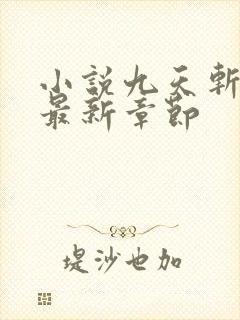 小説九天斬
最新章節
堤沙也加